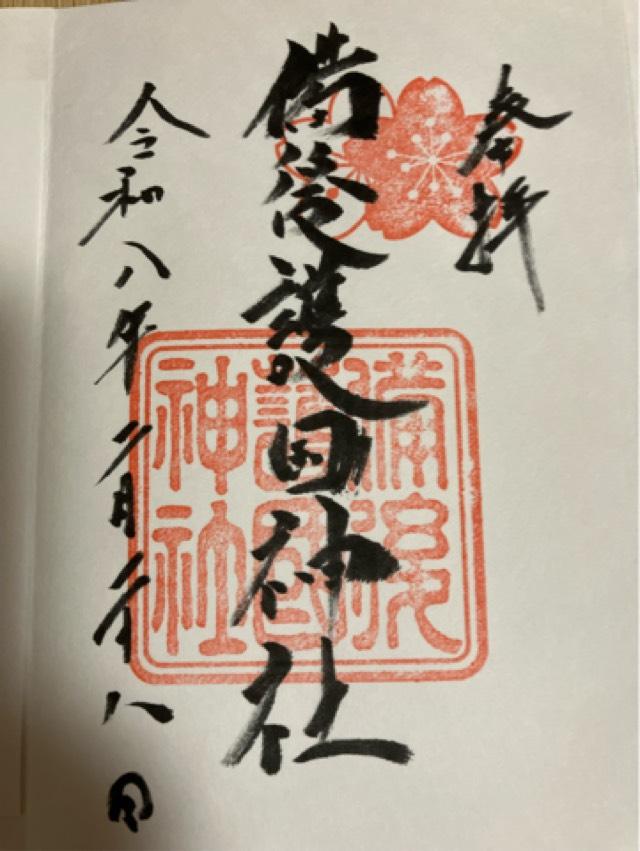 奉拝
備後護国神社
令和八年二月二十八日
備後
護國
神社